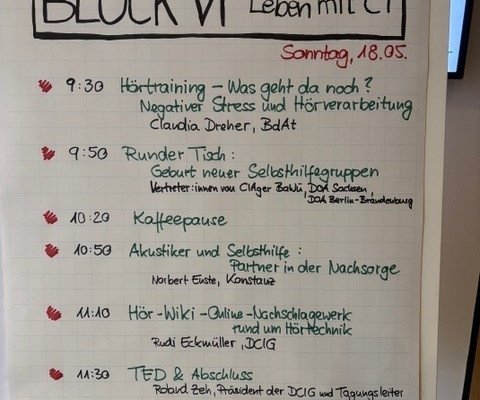 BLOCK VI Leben mit CI
Sonntag, 18.05.
9:30 Hörtraining - Was geht da noch?
Negativer Stress und Hörverarbeitung
Claudia Dreher, BdAt
9:50 Runder Tisch:
Geburt neuer Selbsthilfegruppen
Vertreter:innen von CIAger BaWü, DOA Sachsen,
DOA Berlin-Brandenburg
10:20 Kaffeepause
10:50 Akustiker und Selbsthilfe:
Partner in der Nachsorge
Norbert Enste, Konstanz
11:10 Hör-Wiki-Online-Nachschlagewerk
rund um Hörtechnik
Rudi Eckmüller, DCIG
11:30 TED & Abschluss
Roland Zeh, Präsident der DCIG und Tagungsleiter